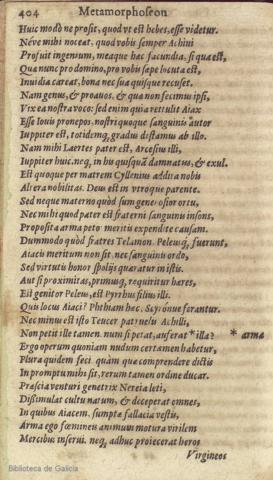 404 Metamorphoseon
Huic modò ne prosit, quod vt est hebes, esse videtur.
Néve mihi noceat, quod vobis semper Achiui
Profuit ingenium, meaque hæc facundia, si qua est,
Quæ nunc pro domino, pro vobis sæpe locuta est,
Inuidia careat, bona nec sua quisque recuset.
Nam genus, & proauos, & quæ non fecimus ipsi,
Vix ea nostra voco: sed enim quia rettulit Aiax
Esse Iouis pronepos, nostri quoque sanguinis autor
Iuppiter est, totidemq́; gradus distamus ab illo.
Nam mihi Laertes pater est, Arcesius illi,
Iuppiter huic, neq; in his quisquã damnatus, & exul.
Est quoque per matrem Cyllenius addita nobis
Altera nobilitas. Deus est in vtroque parente.
Sed neque materno quòd sum generosior ortu,
Nec mihi quod pater est fraterni sanguinis insons,
Proposita arma peto: meritis expendite causam.
Dummodo quòd fratres Telamon, Peleusq́; fuerunt,
Aiacis meritum non sit, nec sanguinis ordo,
Sed virtutis honor spolijs quæratur in istis.
Aut si proximitas, primusq; requiritur hæres,
Est genitor Peleus, est Pyrrhus filius illi.
Quis locus Aiaci? Phthiam hæc, Scyrónue ferantur.
Nec minus est isto Teucer patruelis Achilli,
Non petit ille tamen, num si petat, auferat *illa? * arma
Ergo operum quoniam nudum certamen habetur,
Plura quidem feci, quàm quæ comprendere dictis
In promptu mihi sit, rerum tamen ordine ducar.
Præscia venturi genetrix Nereia leti,
Dissimulat cultu natum, & deceperat omnes,
In quibus Aiacem, sumptæ fallacia vestis,
Arma ego fœmineis animum motura virilem
Mercibus inserui, neq; adhuc proiecerat heros
Virgineos
Biblioteca de Galicia